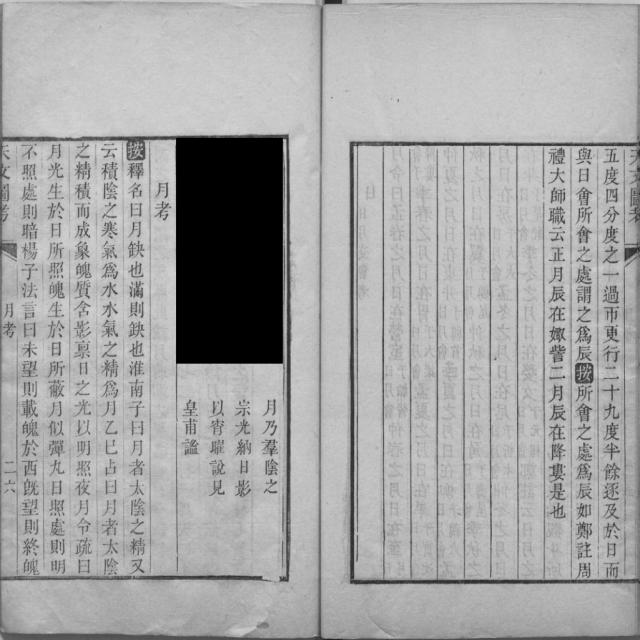 五度四分度之一過帀更行二十九度半餘逐及於日而
與日會所會之處謂之爲辰按所會之處爲辰如鄭註周
禮大師職云正月辰在娵訾二月辰在降婁是也
月乃羣陰之
宗光納日影
以宵曜說見
皇甫謐
月考
按釋名曰月鈌也滿則鈌也淮南子曰月者太陰之精又
云積陰之寒氣爲水水氣之精爲月乙巳占曰月者太陰
之精積而成象魄質含影禀日之光以明照夜月令疏曰
月光生於日所照魄生於日所蔽月似彈丸日照處則明
不照處則暗楊子法言曰未望則載魄於西旣望則終魄
月考
二六